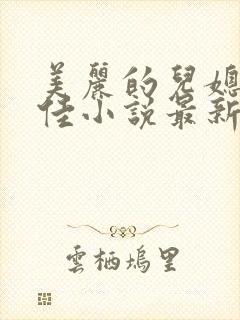 美麗的兒媳
佳小說最新
雲栖塢里